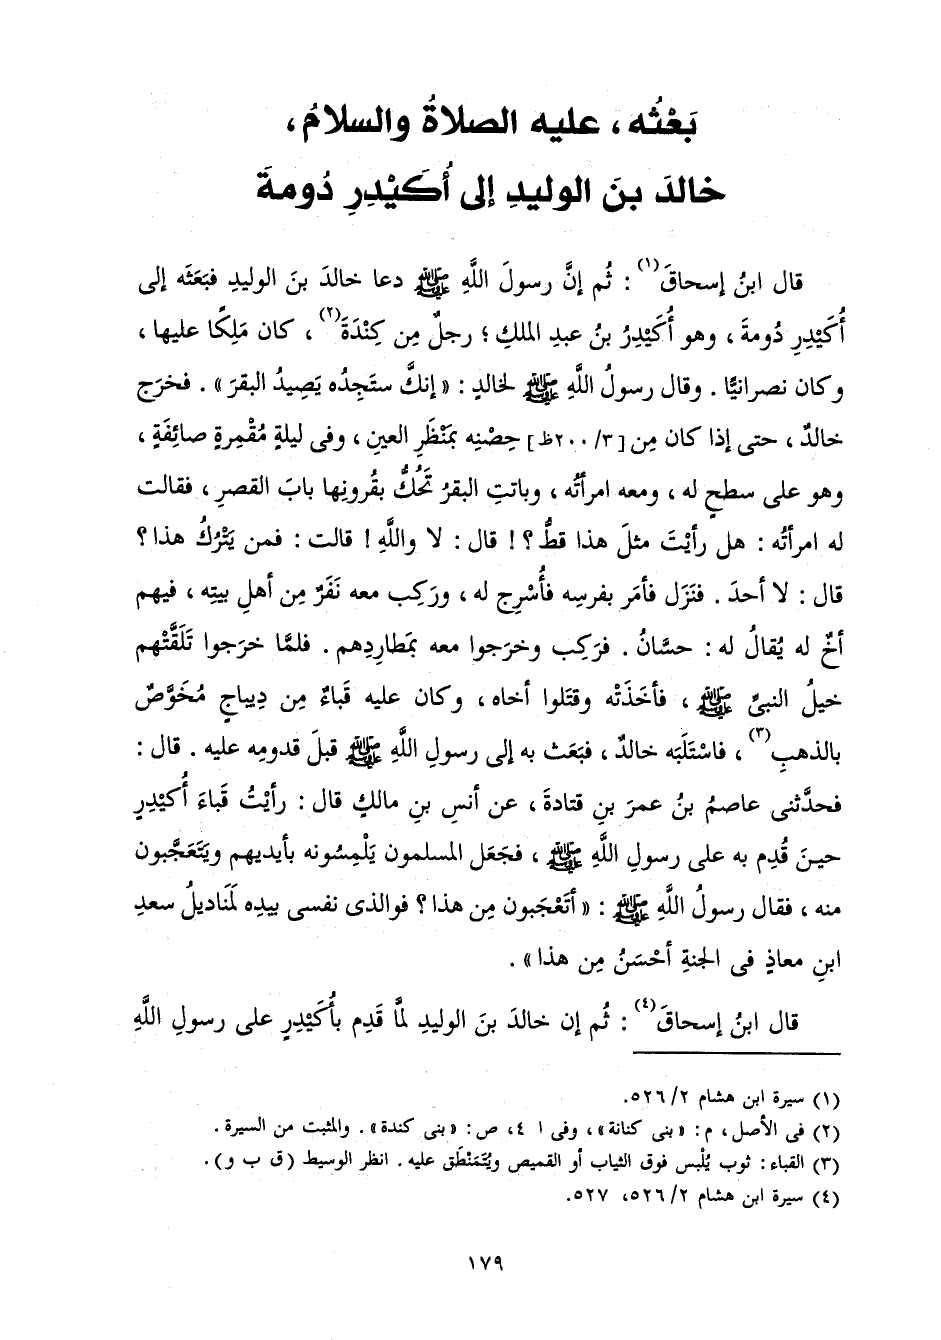 بَعْثُه، عليه الصلاةُ والسلامُ،
خالدَ بنَ الوليدِ إلى أُكَيْدِرِ دُومةَ
قال ابنُ إسحاقَ(١) : ثُم إنَّ رسولَ اللَّهِ ﷺ دعا خالدَ بنَ الوليدِ فبَعَثَه إلى
أُكَيْدِرِ دُومةَ ، وهو أُكَيْدِرُ بنُ عبدِ الملكِ ؛ رجلٌ مِن كِنْدَةَ(٢) ، كان مَلِكًا عليها ،
وكان نصرانيًّا . وقال رسولُ اللَّهِ ﷺ لخالدٍ : « إنكَّ ستَجِدُه يَصِيدُ البقرَ » . فخرَج
خالدٌ ، حتى إذا كان مِن [٢٠٠/٣ظ] حِصْنِه بمَنْظَرِ العينِ ، وفى ليلةٍ مُقْمِرةٍ صائِفَةٍ ،
وهو على سطحٍ له ، ومعه امرأتُه ، وباتتِ البقرُ تَحُكُّ بقُرونِها بابَ القصرِ ، فقالت
له امرأتُه : هل رأيْتَ مثلَ هذا قطُّ ؟! قال : لا واللَّهِ ! قالت : فمن يَتْرُكُ هذا ؟
قال : لا أحدَ . فنَزَل فأمَر بفرسِه فأُسْرِج له ، ورَكِب معه نَفَرٌ مِن أهلِ بيتِه ، فيهم
أخٌ له يُقالُ له : حسَّانُ . فرَكِب وخرَجوا معه بمَطارِدِهم . فلمَّا خرَجوا تَلَقَّتْهم
خيلُ النبىِّ ﷺ ، فأخَذَتْه وقتَلوا أخاه ، وكان عليه قَباءٌ مِن دِيباجٍ مُخَوَّصٌ
بالذهبِ(٣) ، فاسْتَلَبَه خالدٌ ، فبَعَث به إلى رسولِ اللَّهِ ﷺ قبلَ قدومِه عليه . قال :
فحدَّثنى عاصمُ بنُ عمرَ بنِ قتادةَ ، عن أنسِ بنِ مالكٍ قال : رأيْتُ قَباءَ أُكَيْدِرٍ
حينَ قُدِم به على رسولِ اللَّهِ ﷺ ، فجَعَل المسلمون يَلْمِسُونه بأيديهم ويَتَعَجَّبون
منه ، فقال رسولُ اللَّهِ ﷺ : « أتَعْجَبون مِن هذا ؟ فوالذى نفسى بيدِه لَمَناديلُ سعدِ
ابنِ معاذٍ فى الجنةِ أحْسَنُ مِن هذا » .
قال ابنُ إسحاقَ(٤) : ثُم إن خالدَ بنَ الوليدِ لمَّا قَدِم بأُكَيْدِرٍ على رسولِ اللَّهِ
(١) سيرة ابن هشام ٥٢٦/٢.
(٢) فى الأصل، م: «بنى كنانة»، وفى ا ٤، ص: «بنى كندة». والمثبت من السيرة .
(٣) القباء: ثوب يُلْبس فوق الثياب أو القميص ويُتَمَنْطَق عليه. انظر الوسيط (ق ب و).
(٤) سيرة ابن هشام ٥٢٦/٢، ٥٢٧.
١٧٩